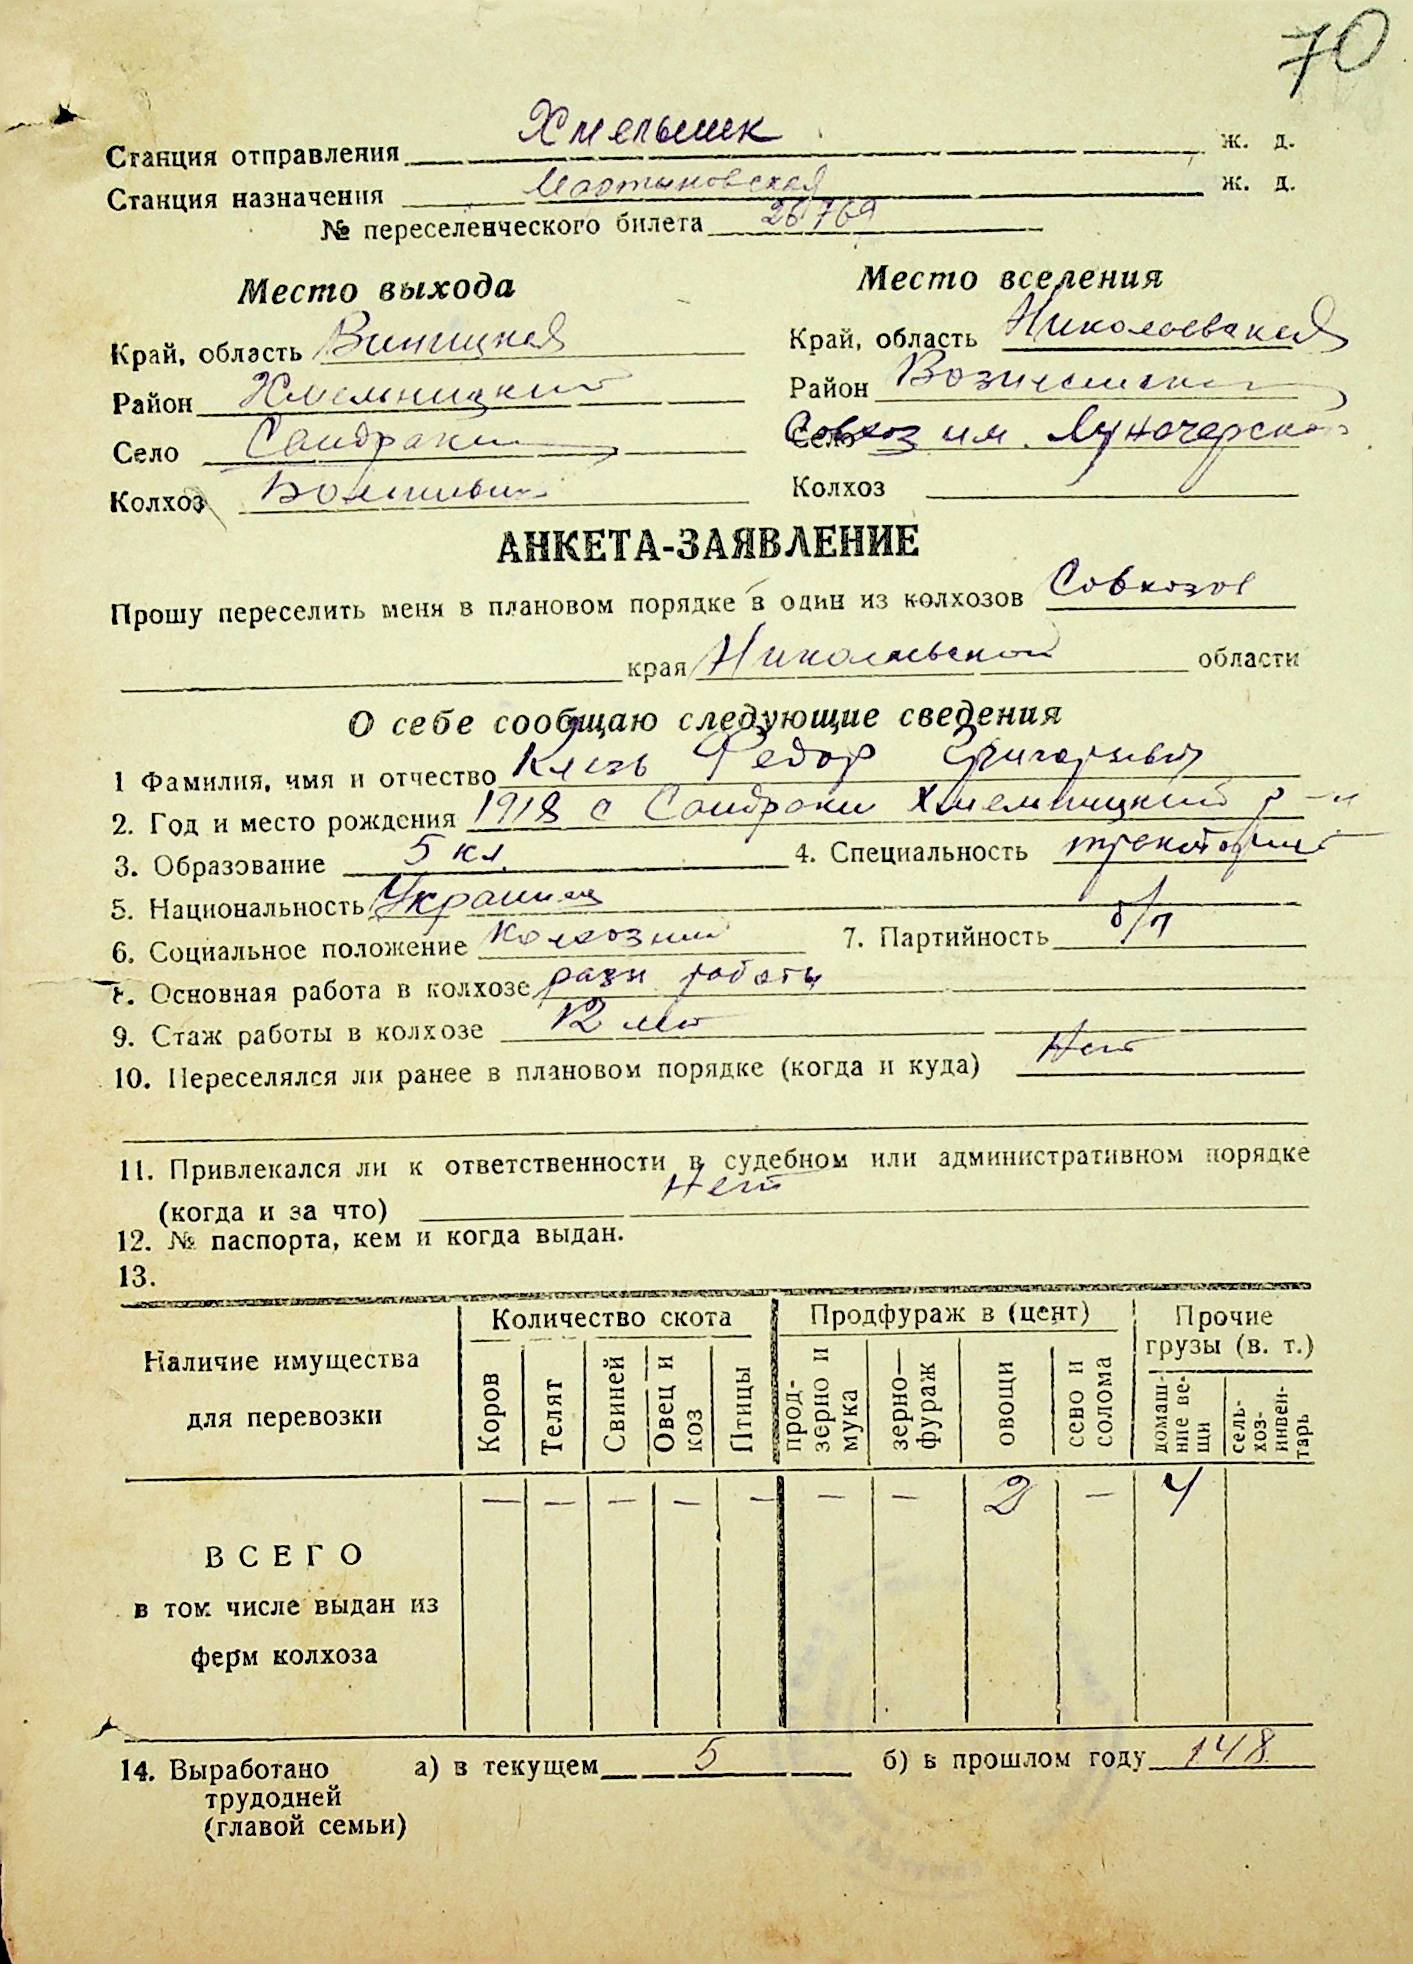 70
Станция отправления Хмельник ж. д.
Станция назначения Мартыновская ж. д.
№ переселенческого билета 26769
Место выхода
Край, область Виницкая
Район Хмельницкий
Село Сандраки
Колхоз
Место вселения
Край, область Николаевская
Район
Село Совхоз им. Луначарского
Колхоз
АНКЕТА-ЗАЯВЛЕНИЕ
Прошу переселить меня в плановом порядке в один из колхозов Совхозов
края Николаевской области
О себе сообщаю следующие сведения
1 Фамилия, имя и отчество Князь Федор Григорьевич
2. Год и место рождения 1918 с Сандраки Хмельницкий р-н
3. Образование 5 кл. 4. Специальность тракторист
5. Национальность Украинец
6. Социальное положение колхозник 7. Партийность б/п
8. Основная работа в колхозе разн работы
9. Стаж работы в колхозе 12 лет
10. Переселялся ли ранее в плановом порядке (когда и куда) Нет
11. Привлекался ли к ответственности в судебном или административном порядке
(когда и за что) Нет
12. № паспорта, кем и когда выдан.
13.
Наличие имущества для перевозки
Количество скота
Продфураж в (цент)
Прочие грузы (в. т.)
Коров
Телят
Свиней
Овец и коз
Птицы
прод-зерно и мука
зерно—фураж
овощи
сено и солома
домаш-ние ве-щи
сель-хоз-инвен-тарь
— — — — — — — 2 — 4
ВСЕГО
в том числе выдан из
ферм колхоза
14. Выработано а) в текущем 5 б) в прошлом году 148
трудодней
(главой семьи)